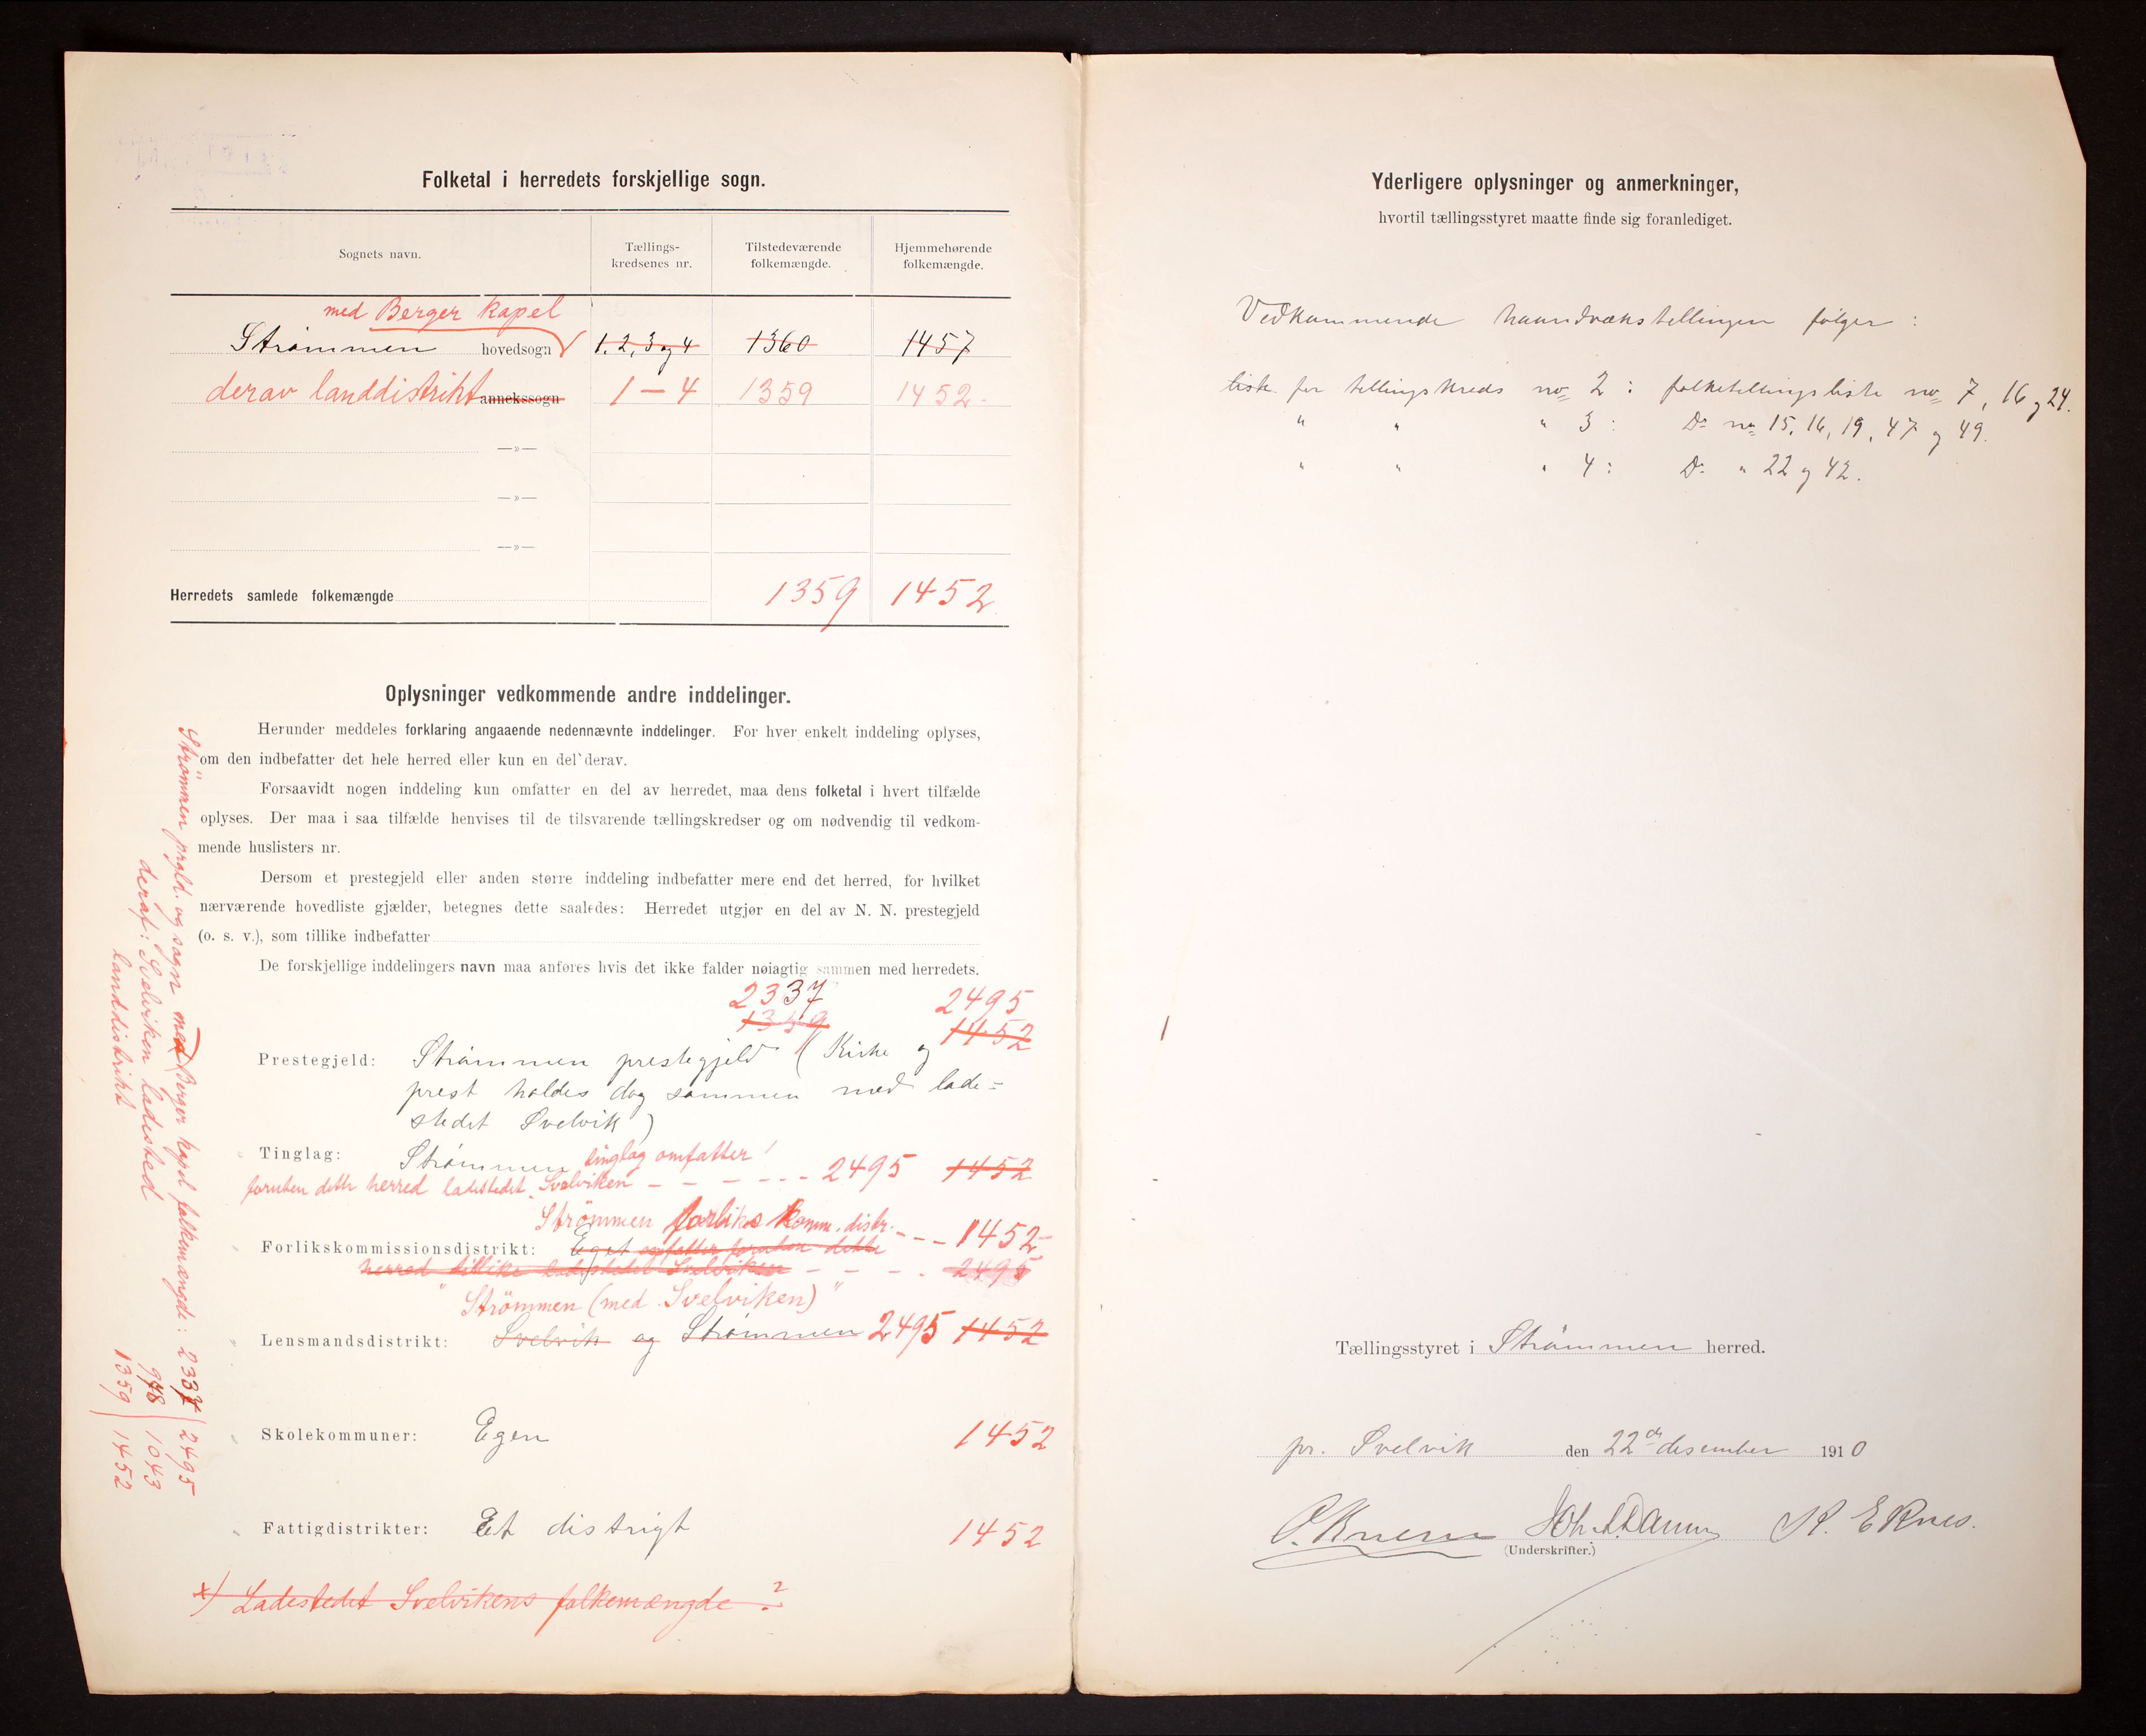 Folketal i herredets forskjellige sogn.
Sognets navn.
Tællings-
kredsenes nr.
Tilstedeværende
folkemængde.
Hjemmehørende
folkemængde.
med Berger kapel
Strømmen hovedsogn 1. 2, 3 og 4 1360 1457
derav landdistrikt annekssogn 1 — 4 1359 1452
—»—
—»—
—»—
Herredets samlede folkemængde 1359 1452
Oplysninger vedkommende andre inddelinger.
Herunder meddeles forklaring angaaende nedennævnte inddelinger. For hver enkelt inddeling oplyses,
om den indbefatter det hele herred eller kun en del derav.
Forsaavidt nogen inddeling kun omfatter en del av herredet, maa dens folketal i hvert tilfælde
oplyses. Der maa i saa tilfælde henvises til de tilsvarende tællingskredser og om nødvendig til vedkom-
mende huslisters nr.
Dersom et prestegjeld eller anden større inddeling indbefatter mere end det herred, for hvilket
nærværende hovedliste gjælder, betegnes dette saaledes: Herredet utgjør en del av N. N. prestegjeld
(o. s. v.), som tillike indbefatter
De forskjellige inddelingers navn maa anføres hvis det ikke falder nøiagtig sammen med herredets.
2337 2495
1359 1452
Prestegjeld: Strømmen prestegjeld (Kirke og
prest holdes dog sammen med lade=
stedet Svelvik)
Tinglag: Strømmen tinglag omfatter
foruten dette herred ladestedet Svelviken - - - - - - 2495 1452
Strömmen forliks komm. distr. - - - 1452
Forlikskommissionsdistrikt: Eget omfatter foruten dette
herred tillike ladestedet Svelviken - - - - 2495
"Strömmen (med Svelviken)"
Lensmandsdistrikt: Svelvik og Strømmen 2495 1452
Skolekommuner: Egen 1452
Fattigdistrikter: Et distrigt 1452
x) Ladestedet Svelvikens folkemængde ?
Strömmen prgld. og sogn med Berger kapel folkemængde: 2337 | 2495
deraf: Svelviken ladested 978 | 1043
landdistrikt 1359 | 1452
Yderligere oplysninger og anmerkninger,
hvortil tællingsstyret maatte finde sig foranlediget.
Vedkommende haandverkstellingen følger :
liste for tellingskreds no 2 : folketellingsliste no 7, 16 og 24.
" " " 3 : Do no 15, 16, 19, 47 og 49.
" " " 4 : Do " 22 og 42.
Tællingsstyret i Strømmen herred.
pr. Svelvik den 22de desember 1910
(Underskrifter.)